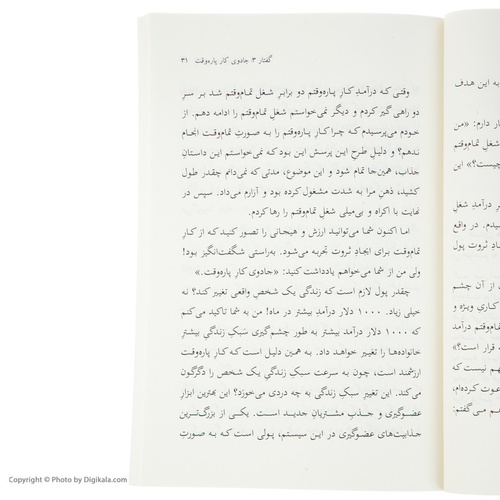 گفتار ۳ جادوی کار پاره‌وقت ۳۱
وقتی که درآمدِ کارِ پاره‌وقتم دو برابرِ شغل تمام‌وقتم شد بر سرِ
دو راهی گیر کردم و دیگر نمی‌خواستم شغل تمام‌وقتم را ادامه دهم. از
خودم می‌پرسیدم که چرا کارِ پاره‌وقتم را به صورتِ تمام‌وقت انجام
ندهم؟ و دلیلِ طرحِ این پرسش این بود که نمی‌خواستم این داستانِ
جذاب، همین‌جا تمام شود و این موضوع، مدتی که نمی‌دانم چقدر طول
کشید، ذهنِ مرا به شدت مشغول کرده بود و آزارم می‌داد. سپس در
نهایت با اکراه و بی‌میلی شغل تمام‌وقتم را رها کردم.
اما اکنون شما می‌توانید ارزش و هیجانی را تصور کنید که از کارِ
تمام‌وقت برای ایجادِ ثروت تجربه می‌شود. به‌راستی شگفت‌انگیز بود!
ولی من از شما می‌خواهم یادداشت کنید: «جادوی کارِ پاره‌وقت.»
چقدر پول لازم است که زندگی یک شخصِ واقعی تغییر کند؟ نه
خیلی زیاد. ۱۰۰۰ دلار درآمدِ بیشتر در ماه! من به شما تاکید می‌کنم
که ۱۰۰۰ دلار درآمد بیشتر به طور چشم‌گیری سَبکِ زندگیِ بیشترِ
خانواده‌ها را تغییر خواهد داد. به همین دلیل است که کارِ پاره‌وقت
ارزشمند است، چون به سرعت سبکِ زندگیِ یک شخص را دگرگون
می‌کند. این تغییرِ سبکِ زندگی به چه دردی می‌خورد؟ این بهترین ابزارِ
عضوگیری و جذبِ مشتریانِ جدید است. یکی از بزرگ‌ترین
جذابیت‌های عضوگیری در این سیستم، پولی است که به صورتِ
به این هدف
دارم: «من
شغلِ تمام‌وقتم
چیست؟» این
درآمدِ شغلِ
در واقع
ثروت پول
از آن چشم
کاریِ ویژه و
تمام‌وقتم درآمد
قرار است؟»
مهم نیست که
دعوت کرده‌ام،
هم می‌گفتم:
Copyright © Photo by Digikala.com